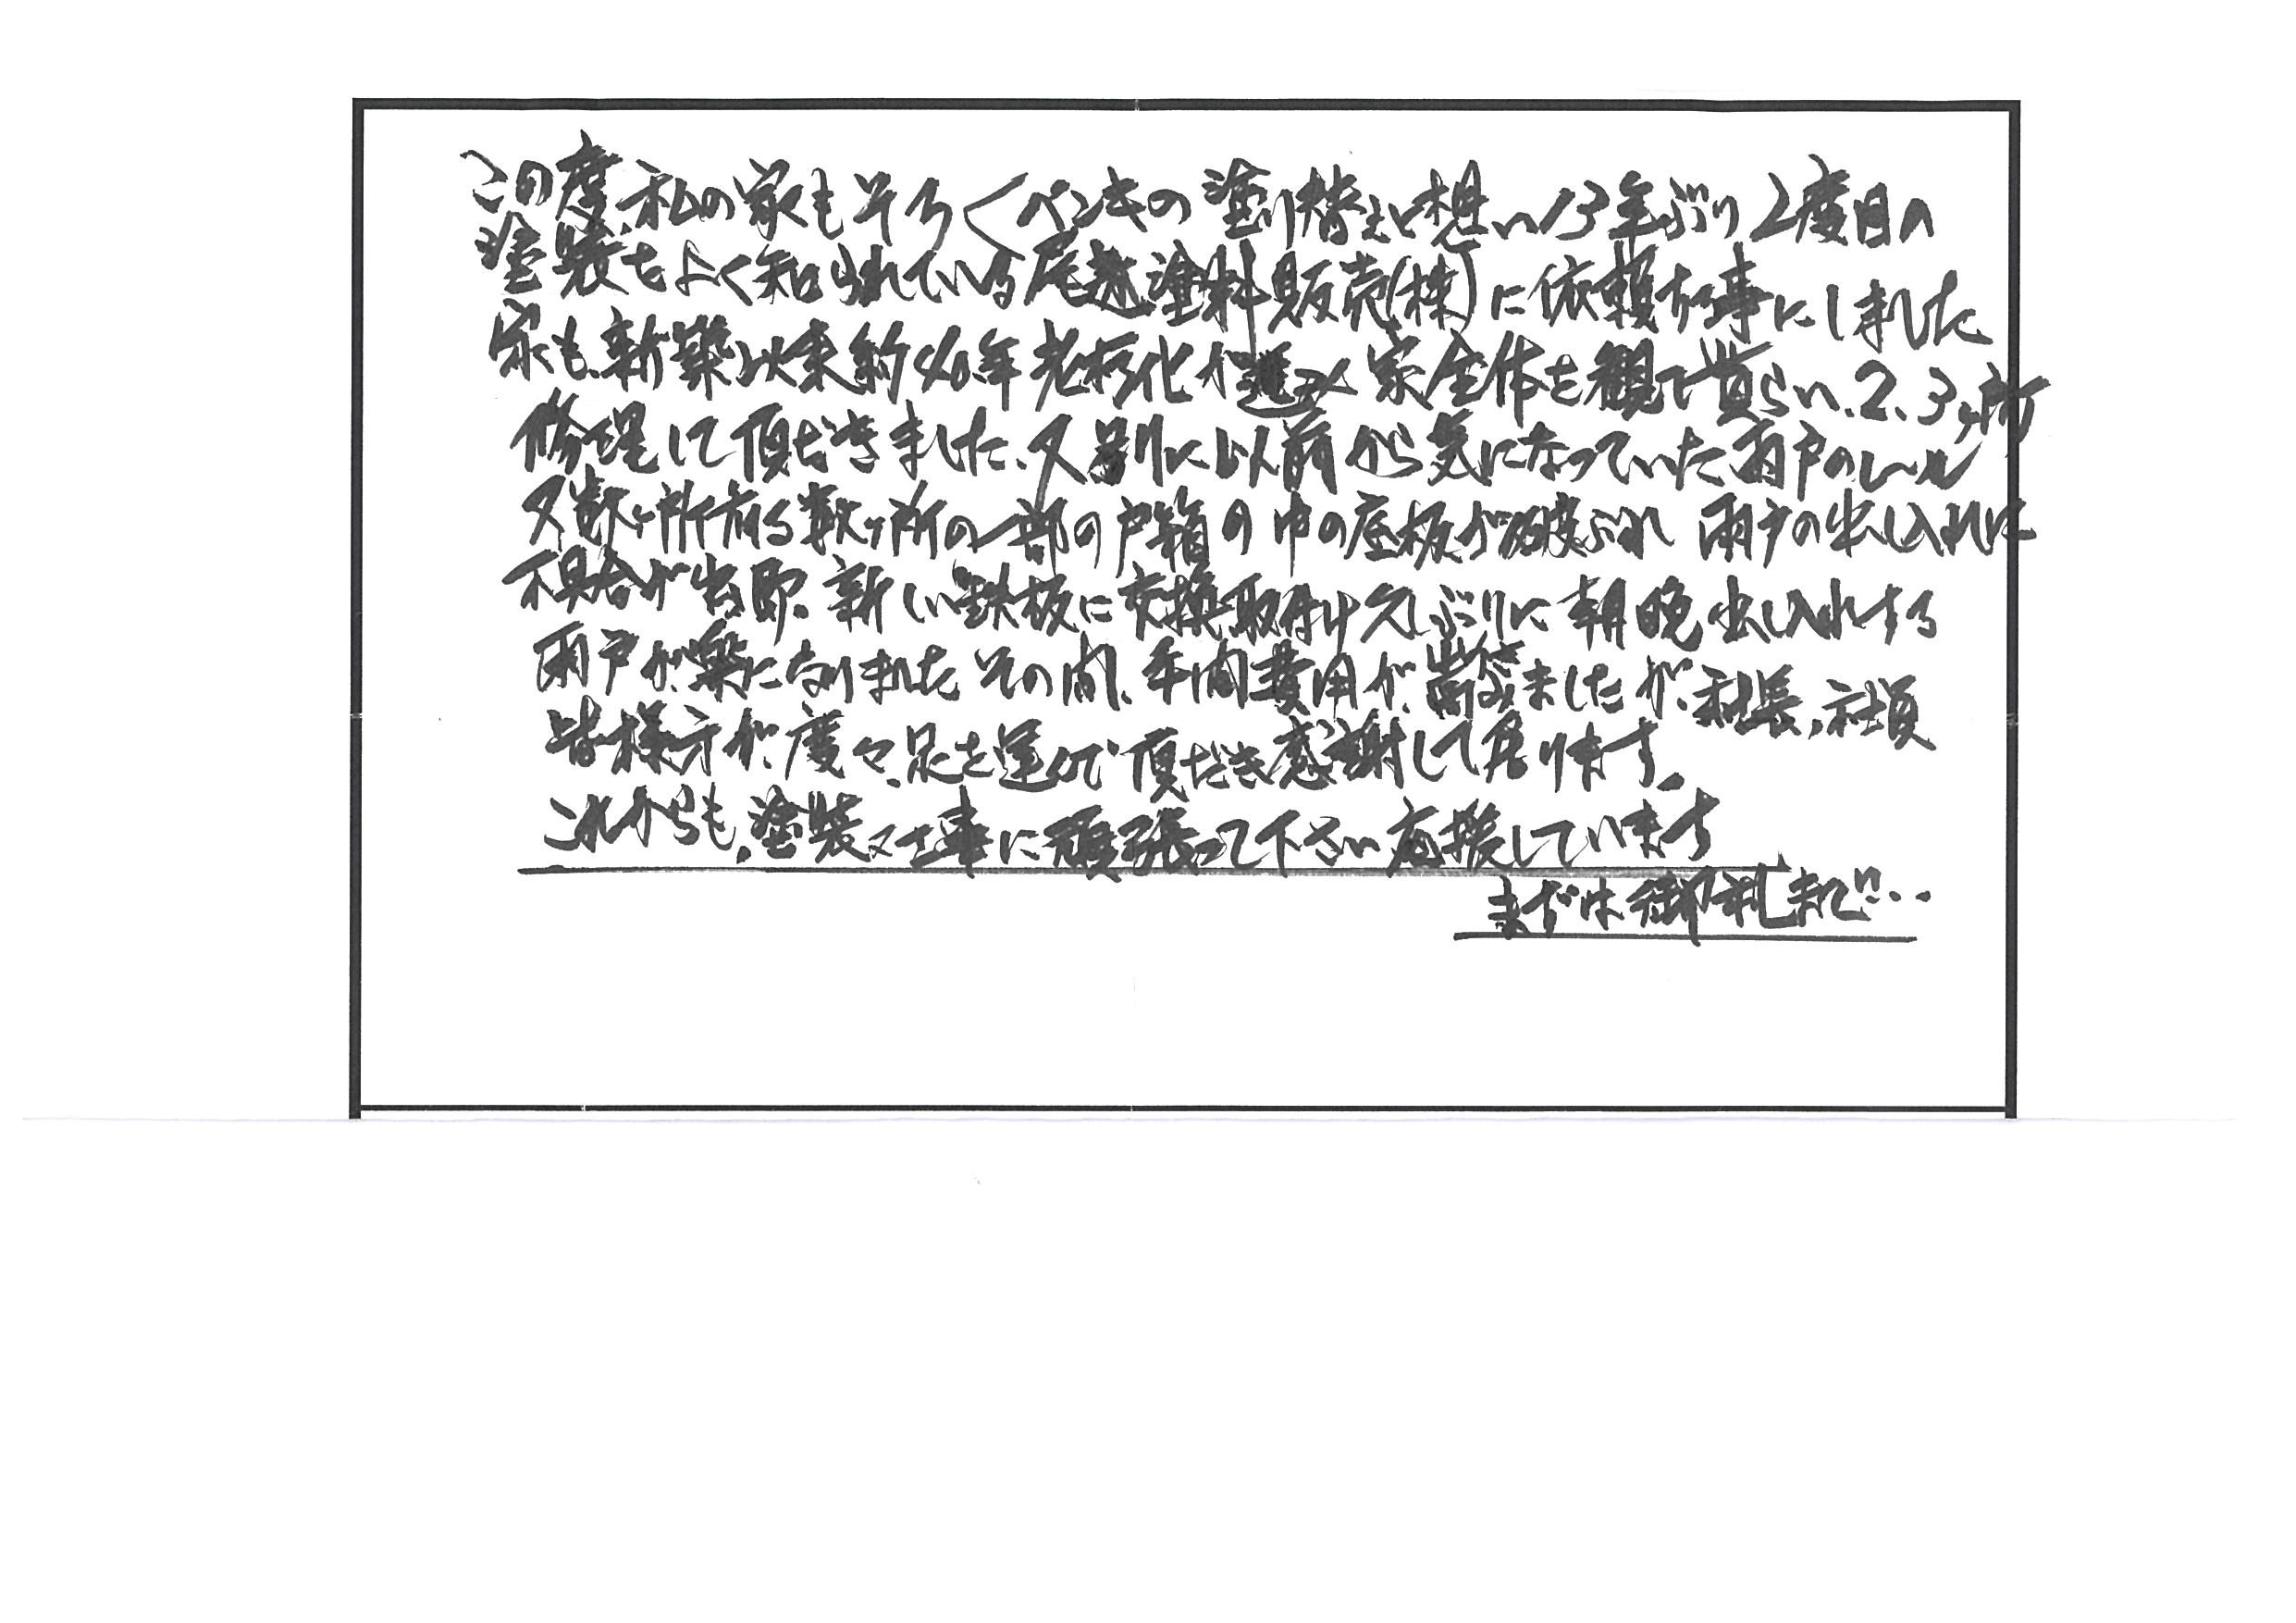 この度、私の家もそろ〱ペンキの塗り替えと想い13年ぶり2度目の
塗装をよく知られている尾越塗料販売(株)に依頼する事にしました
家も、新築以来約40年老朽化が進み家全体を観て貰らい、2、3ヶ所
修理して頂だきました、又別に以前から気になっていた雨戸のレール
又数ヶ所有る数ヶ所の一部の戸箱の中の底板が破ぶれ 雨戸の出し入れに
不具合が出、即、新しい鉄板に交換取付け久しぶりに朝晩出し入れする
雨戸が、楽になりましたその間、手間費用が、嵩みましたが、社長、社員
皆様方が、度々、足を運んで頂だき感謝して居ります。
これからも、塗装工事に頑張って下さい応援しています
まずは御礼まで…